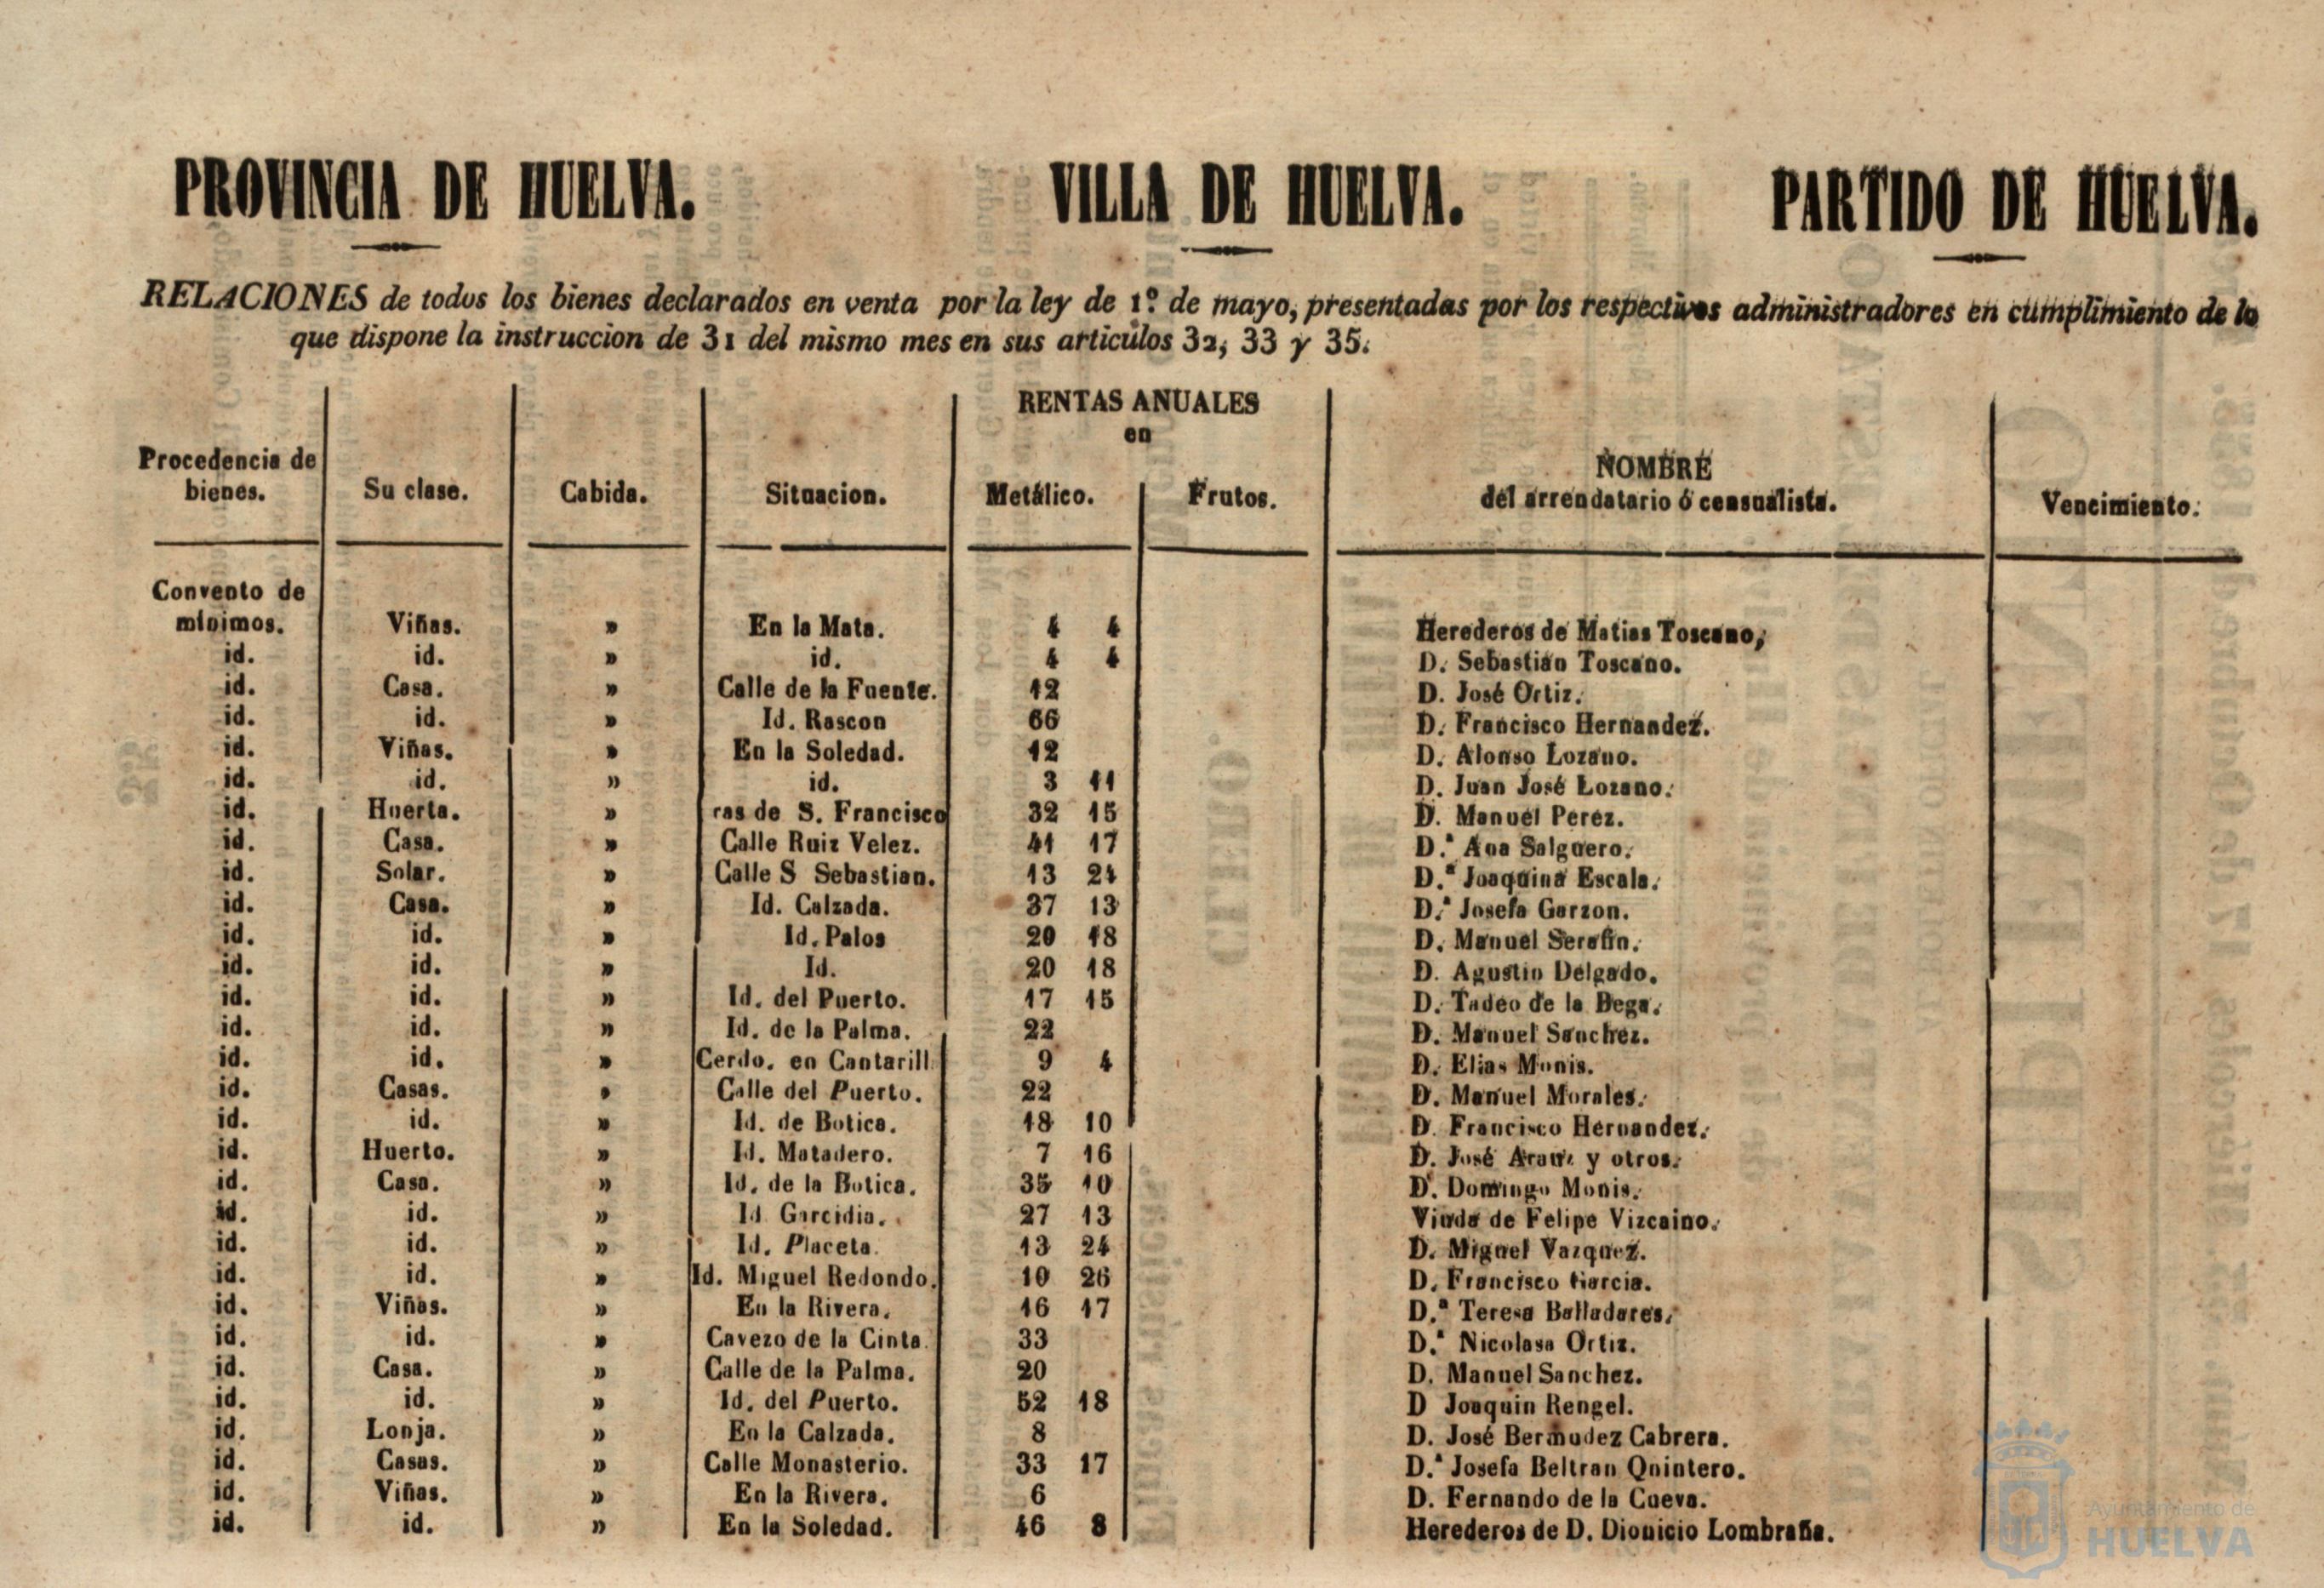 PROVINCIA DE HUELVA. VILLA DE HUELVA. PARTIDO DE HUELVA.
RELACIONES de todos los bienes declarados en venta por la ley de 1.º de mayo, presentadas por los respectivos administradores en cumplimiento de lo
que dispone la instruccion de 31 del mismo mes en sus articulos 32, 33 y 35.
RENTAS ANUALES
en
Procedencia de bienes. Su clase. Cabida. Situacion. Metálico. Frutos. NOMBRE del arrendatario ó censualista. Vencimiento.
Convento de
mínimos. Viñas. » En la Mata. 4 4 Herederos de Matias Toscano,
id. id. » id. 4 4 D. Sebastian Toscano.
id. Casa. » Calle de la Fuente. 12 D. José Ortiz.
id. id. » Id. Rascon 66 D. Francisco Hernandez.
id. Viñas. » En la Soledad. 12 D. Alonso Lozano.
id. id. » id. 3 11 D. Juan José Lozano.
id. Huerta. » ras de S. Francisco 32 15 D. Manuel Perez.
id. Casa. » Calle Ruiz Velez. 41 17 D.ª Ana Salguero.
id. Solar. » Calle S Sebastian. 13 24 D.ª Joaquina Escala.
id. Casa. » Id. Calzada. 37 13 D.ª Josefa Garzon.
id. id. » Id. Palos 20 18 D. Manuel Serafin.
id. id. » Id. 20 18 D. Agustin Delgado.
id. id. » Id. del Puerto. 17 15 D. Tadeo de la Bega.
id. id. » Id. de la Palma. 22 D. Manuel Sanchez.
id. id. » Cerdo. en Cantarill 9 4 D. Elias Monis.
id. Casas. » Calle del Puerto. 22 D. Manuel Morales.
id. id. » Id. de Botica. 18 10 D. Francisco Hernandez.
id. Huerto. » Id. Matadero. 7 16 D. José y otros.
id. Casa. » Id. de la Botica. 35 10 D. Domingo Monis.
id. id. » Id Garcidia. 27 13 Viuda de Felipe Vizcaino.
id. id. » Id. Placeta. 13 24 D. Miguel Vazquez.
id. id. » Id. Miguel Redondo. 10 26 D. Francisco Garcia.
id. Viñas. » En la Rivera. 16 17 D.ª Teresa Balladares.
id. id. » Cavezo de la Cinta. 33 D.ª Nicolasa Ortiz.
id. Casa. » Calle de la Palma. 20 D. Manuel Sanchez.
id. id. » Id. del Puerto. 52 18 D Joaquin Rengel.
id. Lonja. » En la Calzada. 8 D. José Bermudez Cabrera.
id. Casas. » Calle Monasterio. 33 17 D.ª Josefa Beltran Quintero.
id. Viñas. » En la Rivera. 6 D. Fernando de la Cueva.
id. id. » En la Soledad. 46 8 Herederos de D. Dionicio Lombraña.
Ayuntamiento de
HUELVA